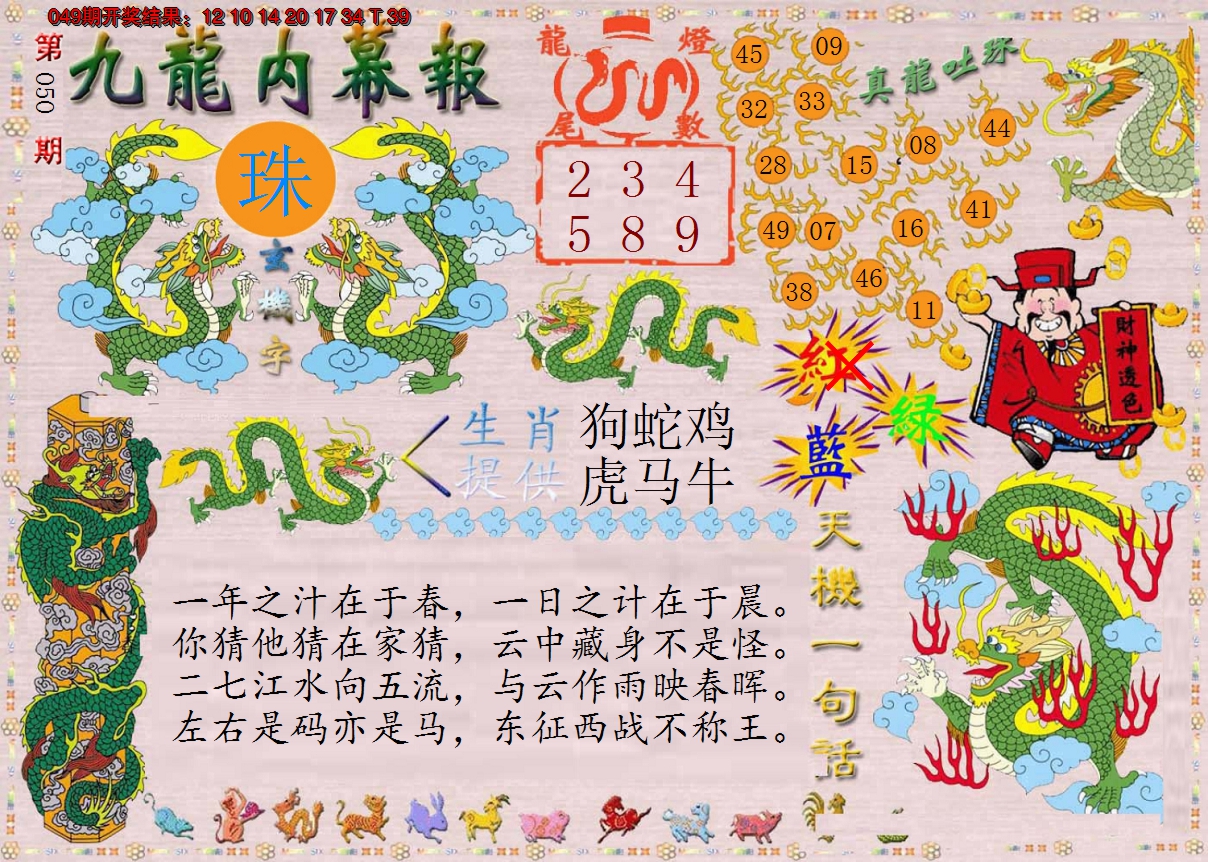 049期开奖结果：12 10 14 20 17 34 T 39
第050期
九龍内幕報
珠
玄機字
龍燈尾數
2 3 4
5 8 9
真龍吐珠
45 09
32 33
28 15 08 44
49 07 16 41
38 46 11
財神透色
紅
綠
藍
生肖提供
狗蛇鸡
虎马牛
天機一句話
一年之汁在于春，一日之计在于晨。
你猜他猜在家猜，云中藏身不是怪。
二七江水向五流，与云作雨映春晖。
左右是码亦是马，东征西战不称王。